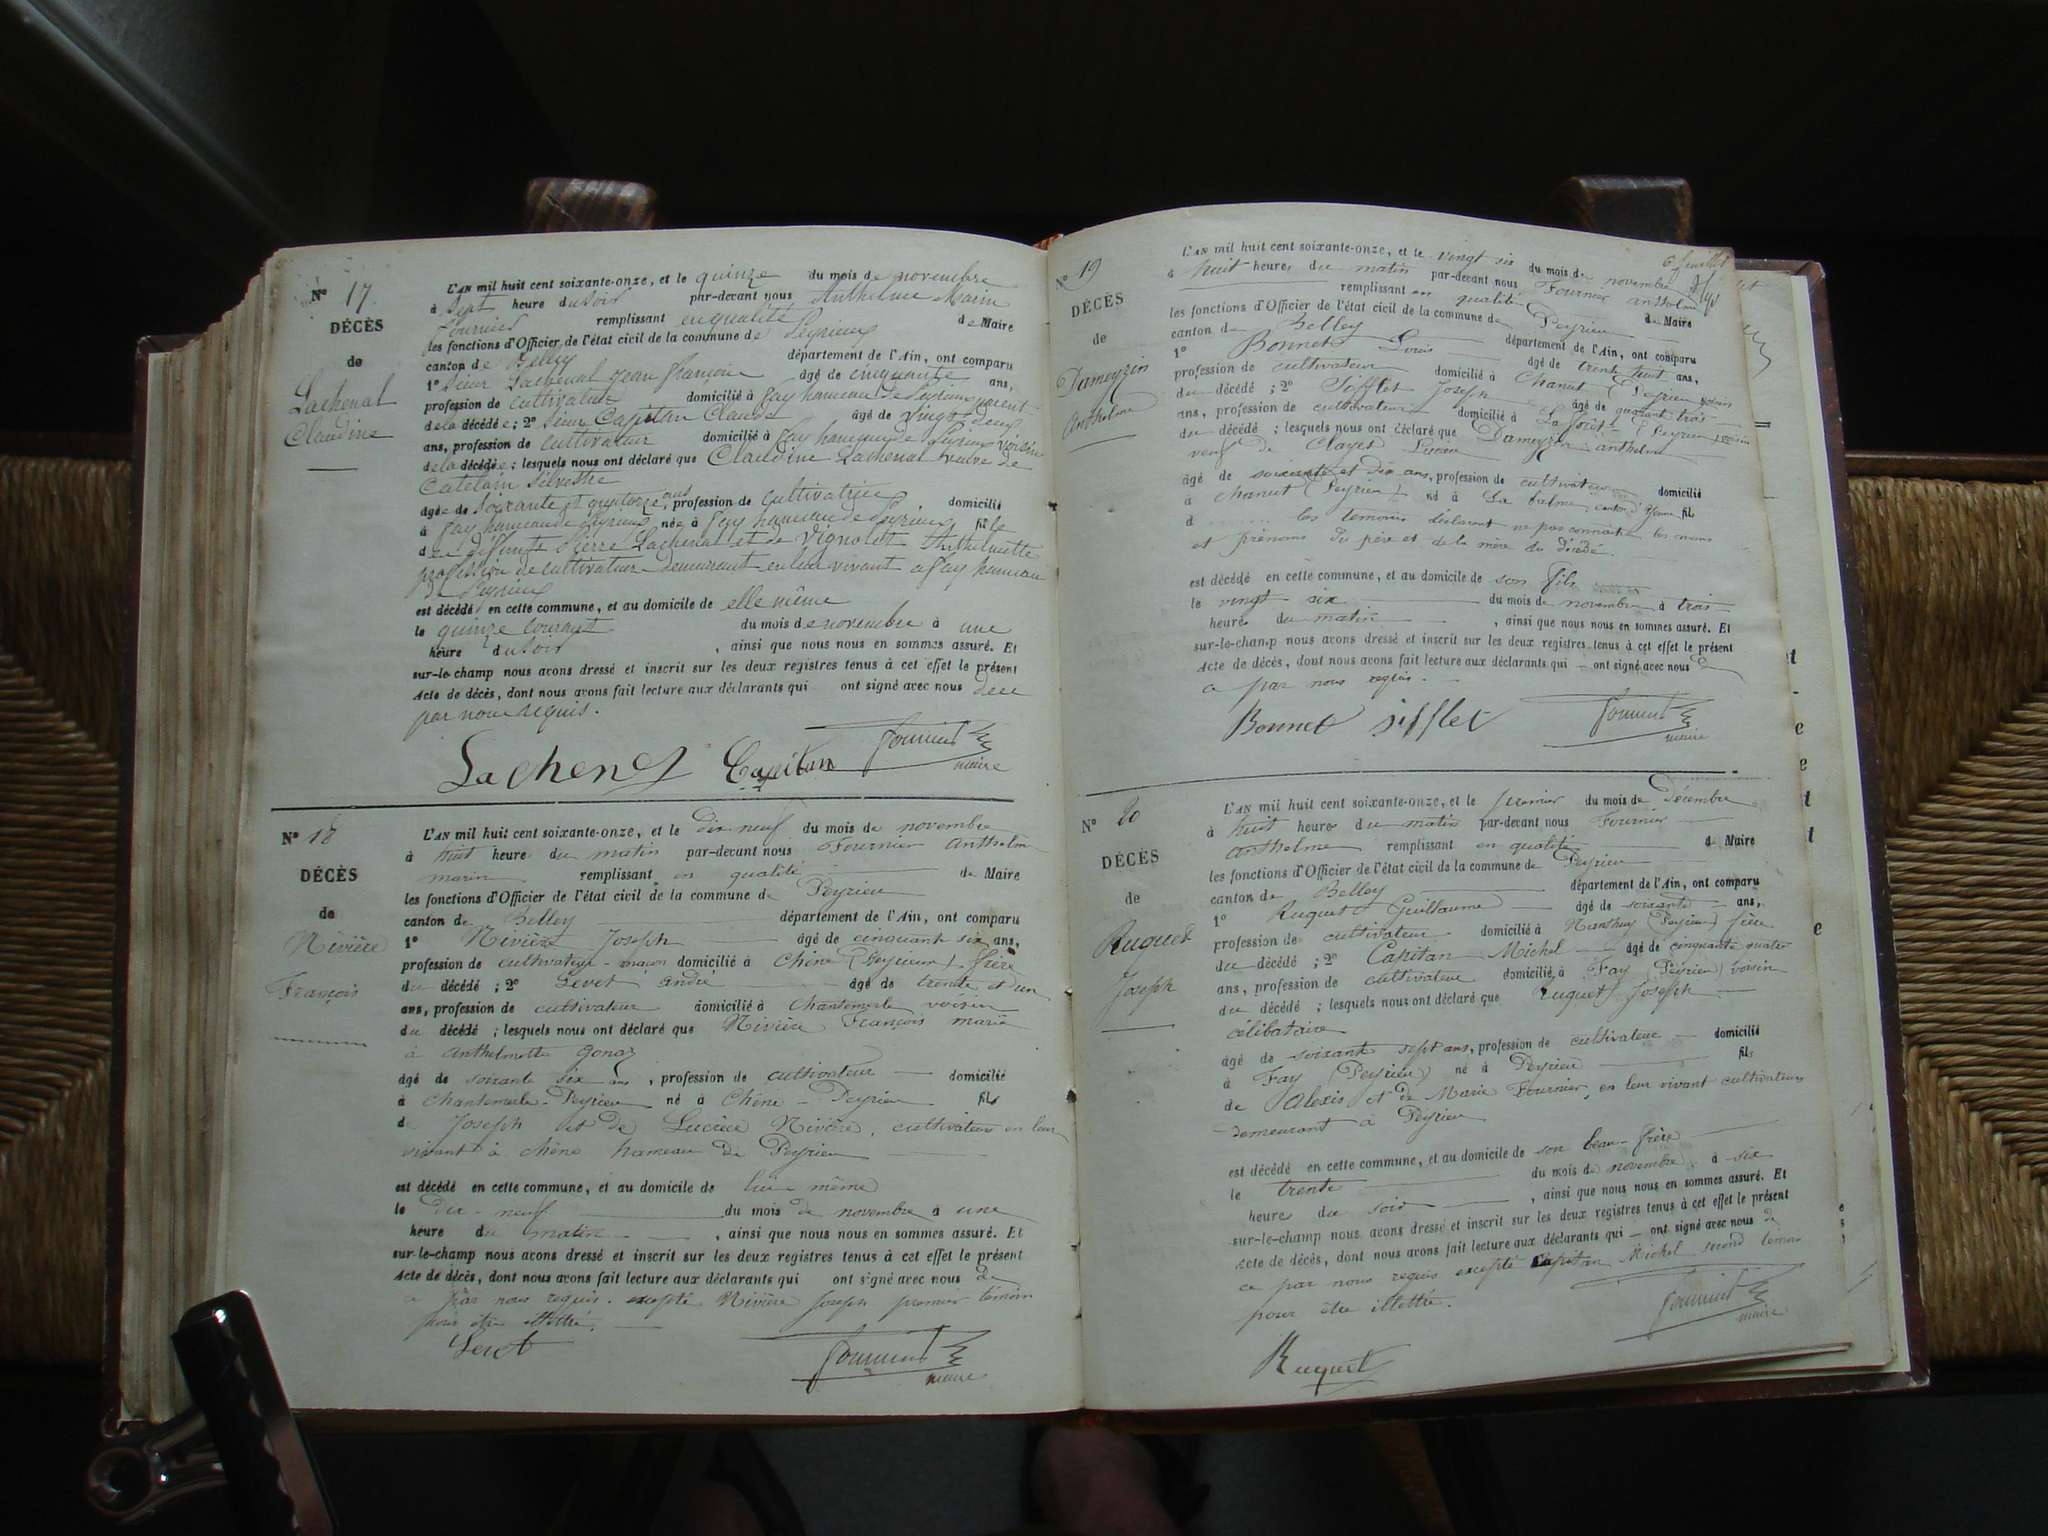 N° 17.
DÉCÈS
de
Lachenal
Claudine
L'AN mil huit cent soixante-onze, et le quinze du mois de novembre
à sept heure du soir par-devant nous Anthelme Marin
Fournier remplissant en qualité de Maire
les fonctions d'Officier de l'état civil de la commune de Peyrieux
canton de Belley département de l'Ain, ont comparu
1° Sieur Lachenal Jean françois âgé de cinquante ans,
profession de cultivateur domicilié à fay hameau de Peyrieux parent
de la décédée ; 2° Sieur Capitan Claude âgé de vingt deux
ans, profession de cultivateur domicilié à fay hameau de Peyrieux voisin
de la décédée ; lesquels nous ont déclaré que Claudine Lachenal veuve de
Catelain Silvestre
agée de soixante et quatorze ans, profession de cultivatrice domicilié
à fay hameau de Peyrieux, née à fay hameau de Peyrieux fille
de défunt Pierre Lachenal et de Vignolet Anthelmette
profession de cultivateur demeurant en leur vivant à fay hameau
de Peyrieux
est décédé en cette commune, et au domicile de elle même
le quinze courant du mois de novembre à une
heure du soir, ainsi que nous nous en sommes assuré. Et
sur-le-champ nous avons dressé et inscrit sur les deux registres tenus à cet effet le présent
Acte de décès, dont nous avons fait lecture aux déclarants qui ont signé avec nous de ce
par nous requis.
Lachenal Capitan Fournier
maire
N° 18
DÉCÈS
de
Nivière
François
L'AN mil huit cent soixante-onze, et le dix neuf du mois de novembre
à huit heure du matin par-devant nous Fournier anthelme
marin remplissant en qualité de Maire
les fonctions d'Officier de l'état civil de la commune de Peyrieu
canton de Belley département de l'Ain, ont comparu
1° Nivière Joseph âgé de cinquant six ans,
profession de cultivateur-maçon domicilié à Chêne (Peyrieu) frère
du décédé ; 2° Levet andré âgé de trente et un
ans, profession de cultivateur domicilié à Chantemerle voisin
du décédé ; lesquels nous ont déclaré que Nivière François marié
à anthelmette Gonaz
âgé de soixante six ans, profession de cultivateur domicilié
à Chantemerle-Peyrieu né à Chêne-Peyrieu fils
de Joseph et de Nivière, cultivateurs en leur
vivant à chêne hameau de Peyrieu
est décédé en cette commune, et au domicile de lui même
le dix-neuf du mois de novembre à une
heure du matin, ainsi que nous nous en sommes assuré. Et
sur-le-champ nous avons dressé et inscrit sur les deux registres tenus à cet effet le présent
Acte de décès, dont nous avons fait lecture aux déclarants qui ont signé avec nous de
ce par nous requis. excepté Nivière Joseph premier témoin
pour être illettré.
Levet Fournier
maire
6e feuillet
N° 19
DÉCÈS
de
Dameyzin
Anthelme
L'AN mil huit cent soixante-onze, et le vingt six du mois de novembre
à huit heures du matin par-devant nous Fournier anthelme
remplissant en qualité de Maire
les fonctions d'Officier de l'état civil de la commune de Peyrieu
canton de Belley département de l'Ain, ont comparu
1° Bonnet Louis âgé de trente huit ans,
profession de cultivateur domicilié à Chanut (Peyrieu) voisin
du décédé ; 2° Sifflet Joseph âgé de quarant trois
ans, profession de cultivateur domicilié à La forêt (Peyrieu) voisin
du décédé ; lesquels nous ont déclaré que Dameyzin anthelme
veuf de Clayet
âgé de soixante et dix ans, profession de cultivateur domicilié
à Chanut (Peyrieu) né à La balme, canton d'Yenne fils
d les temoins déclarent ne pas connaître les noms
et prénoms du père et de la mère du décédé.
est décédé en cette commune, et au domicile de son fils
le vingt six du mois de novembre à trois
heures du matin, ainsi que nous nous en sommes assuré. Et
sur-le-champ nous avons dressé et inscrit sur les deux registres tenus à cet effet le présent
Acte de décès, dont nous avons fait lecture aux déclarants qui ont signé avec nous de
ce par nous requis.
Bonnet Sifflet Fournier
maire
N° 20
DÉCÈS
de
Ruguet
Joseph
L'AN mil huit cent soixante-onze, et le premier du mois de Décembre
à huit heures du matin par-devant nous Fournier
anthelme remplissant en qualité de Maire
les fonctions d'Officier de l'état civil de la commune de Peyrieu
canton de Belley département de l'Ain, ont comparu
1° Ruguet Guillaume âgé de soixante ans,
profession de cultivateur domicilié à Nanthuy (Peyrieu) frère
du décédé ; 2° Capitan Michel âgé de cinquante quatre
ans, profession de cultivateur domicilié à Fay (Peyrieu) voisin
du décédé ; lesquels nous ont déclaré que Ruguet Joseph
célibataire
âgé de soixante sept ans, profession de cultivateur domicilié
à Fay (Peyrieu) né à Peyrieu fils
de Alexis et de Marie Fournier, en leur vivant cultivateurs
demeurant à Peyrieu
est décédé en cette commune, et au domicile de son beau-frère
le trente du mois de novembre à six
heures du soir, ainsi que nous nous en sommes assuré. Et
sur-le-champ nous avons dressé et inscrit sur les deux registres tenus à cet effet le présent
Acte de décès, dont nous avons fait lecture aux déclarants qui ont signé avec nous de
ce par nous requis excepté Capitan Michel second témoin
pour être illettré.
Ruguet Fournier
maire